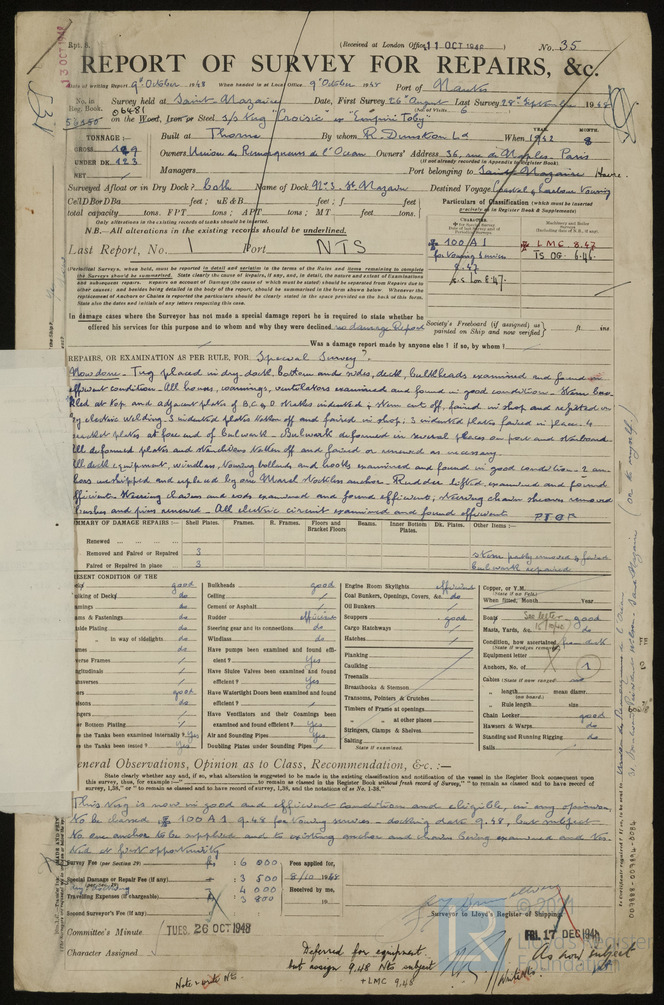 Rpt. 8.
(Received at London Office 11 OCT 1948)
No. 35
REPORT OF SURVEY FOR REPAIRS, &c.
Date of writing Report 9th October 1948 When handed in at Local Office 9th October 1948 Port of Nantes
No. in Reg. Book. Survey held at Saint-Nazaire Date, First Survey 26th August Last Survey 28th September 1948
06481
(No. of Visits 6)
56155 on the Wood, Iron or Steel s/s tug "Croisic" ex "Empire Toby"
TONNAGE:—
GROSS
UNDER DK. 123
NET
Built at Thorne By whom R. Dunston Ld When 1942 8
YEAR. MONTH.
Owners Union des Remorqueurs de l'Ocean Owners' Address 36, rue de Naples. Paris
(if not already recorded in Appendix to Register Book)
Managers Port belonging to Saint Nazaire Havre
Surveyed Afloat or in Dry Dock? both Name of Dock No. 3. St Nazaire Destined Voyage Coastal & harbour towing
Cell D B or D Ba feet; uE & B feet; f feet
total capacity tons. FPT tons; APT tons; MT feet tons.
Only alterations in the existing records of tanks should be inserted.
N.B.—All alterations in the existing records should be underlined.
Last Report, No. 1 Port NTS
Particulars of Classification (which must be inserted precisely as in Register Book & Supplements)
✠ 100 A1
for towing services
8.47
✠ LMC 8.47
TS OG 6.46
(Periodical Surveys, when held, must be reported in detail and seriatim in the terms of the Rules and items remaining to complete
the Surveys should be summarised. State clearly the cause of Repairs, if any, and, in detail, the nature and extent of Examinations
and subsequent repairs. Repairs on account of Damage (the cause of which must be stated) should be separated from Repairs due to
other causes; and besides being detailed in the body of the report, should be summarised in the form shewn below. Whenever the
replacement of Anchors or Chains is reported the particulars should be clearly stated in the space provided on the back of this form.
State also the dates and initials of any letters respecting this case.
In damage cases where the Surveyor has not made a special damage report he is required to state whether he
offered his services for this purpose and to whom and why they were declined no damage Report
Society's Freeboard (if assigned) as painted on Ship and now verified ft. ins
Was a damage report made by anyone else? if so, by whom?
REPAIRS, OR EXAMINATION AS PER RULE, FOR Special Survey?
Now done - Tug placed in dry-dock, bottom and sides, deck, bulkheads examined and found in
efficient condition - All houses, coamings, ventilators examined and found in good condition - Stem
at top and adjacent plates of B, C, & D strakes indented & stem cut off, faired in shop and refitted
by electric welding. 3 indented plates taken off and faired in shop. 3 indented plates faired in place. 4
plates at fore end of bulwark - Bulwark deformed in several places on port and starboard
All deformed plates and stanchions taken off and faired or renewed as necessary.
All deck equipment, windlass, towing bollards and hooks examined and found in good condition. 2
unshipped and replaced by one Marrel stockless anchor. Rudder lifted examined and found
efficient. Steering chains and rods examined and found efficient, steering chain sheaves removed
bushes and pins renewed. All electric circuit examined and found efficient. P.T.O.
SUMMARY OF DAMAGE REPAIRS:— Shell Plates. Frames. R. Frames. Floors and Bracket Floors Beams. Inner Bottom Plates. Dk. Plates. Other Items:—
Renewed
Removed and Faired or Repaired 3 stem partly removed & faired
Faired or Repaired in place 3 bulwark repaired
PRESENT CONDITION OF THE
good
of Decks do
do
& Fastenings do
Plating do
in way of sidelights do
do
Frames
good
do
Bottom Plating
the Tanks been examined internally? Yes
the Tanks been tested? Yes
Bulkheads good
Ceiling
Cement or Asphalt
Rudder efficient
Steering gear and its connections do
Windlass do
Have pumps been examined and found efficient? Yes
Have Sluice Valves been examined and found efficient? Yes
Have Watertight Doors been examined and found efficient?
Have Ventilators and their Coamings been examined and found efficient? Yes
Air and Sounding Pipes Yes
Doubling Plates under Sounding Pipes
Engine Room Skylights efficient
Coal Bunkers, Openings, Covers, &c. do
Oil Bunkers
Scuppers good
Cargo Hatchways
Hatches
Planking
Caulking
Treenails
Breasthooks & Stemson
Transoms, Pointers, & Crutches
Timbers of Frame at openings
" " at other places
Stringers, Clamps & Shelves
Salting
State if examined.
Copper, or Y.M.
(State if on Felt)
When fitted, Month Year
Boats good
Masts, Yards, &c. do
Condition, how ascertained from deck
(State if wedges removed)
Equipment letter
Anchors, No. of 1
Cables (State if now ranged) no
" length mean diamr.
(on board)
" Rule length size
Chain Locker good
Hawsers & Warps do
Standing and Running Rigging do
Sails
General Observations, Opinion as to Class, Recommendation, &c.:—
State clearly whether any, and if so, what alteration is suggested to be made in the existing classification and notification of the vessel in the Register Book consequent upon
this survey, thus, for example:—" to remain as classed in the Register Book without fresh record of Survey," " to remain as classed and to have record of
survey, 1,38," or " to remain as classed and to have record of survey, 1,38, and the notations of ss No. 1-38."
This tug is now in good and efficient condition and eligible, in my opinion,
to be classed ✠ 100A1 9.48 for towing services - docking date 9.48, but subject
to one anchor to be supplied and to existing anchor and chains being examined and
at first opportunity
Survey Fee (per Section 29) 6 000
Special Damage or Repair Fee (if any) 3 500
4 000
Travelling Expenses (if chargeable) 3 800
Second Surveyor's Fee (if any)
Fees applied for,
8/10 1948
Received by me,
19
Surveyor to Lloyd's Register of Shipping
Committee's Minute TUES. 26 OCT 1948
FRI. 17 DEC 1948
Character Assigned
Deferred for equipment.
but assign 9.48 Nts subject
+ LMC 9.48
As now subject
Note & write Nts.
Write Nts.
© 2021
LR
Lloyd's Register
Foundation
009888-009896-0086